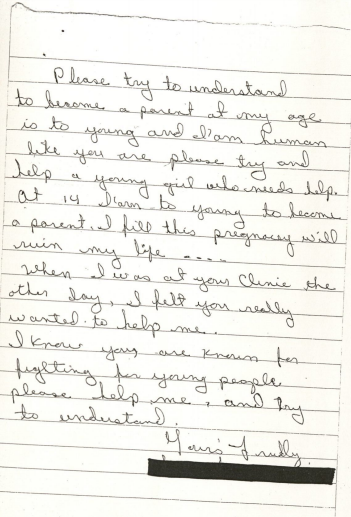 Please try to understand
to become a parent at my age
is to young and I'am human
like you are please try and
help a young girl who needs help.
at 14 I'am to young to become
a parent. I fill this pregnacey will
ruin my life ----
When I was at your Clinic the
other day, I felt you really
wanted to help me.
I know you, are known for
fighting for young people
please help me, and try
to understand.
Yours Truly.